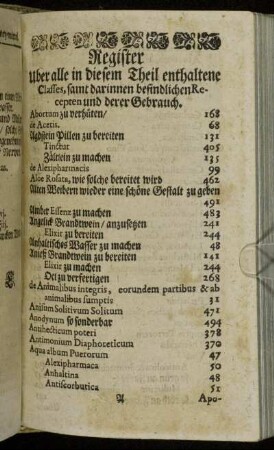 Register
Uber alle in diesem Theil enthaltene
Classes, samt darinnen befindlichen Re-
cepten und derer Gebrauch.
Abortum zu verhüten/ 168
de Acetis. 68
Agdstein Pillen zu bereiten 131
Tinctur 405
Zältlein zu machen 135
de Alexipharmacis 99
Aloe Rosata, wie solche bereitet wird 462
Alten Weibern wieder eine schöne Gestalt zu geben
491
Amber Essenz zu machen 483
Angelick Brandtwein/ anzusetzen 241
Elixir zu bereiten 244
Anhaltisches Wasser zu machen 48
Anieß Brandtwein zu bereiten 141
Elixir zu machen 244
Oel zu verfertigen 268
de Animalibus integris, eorundem partibus & ab
animalibus sumptis 31
Anisum Solitivum Solitum 471
Anodynum so sonderbar 494
Antihecticum poteri 378
Antimonium Diaphoreticum 370
Aqua album Puerorum 47
Alexipharmaca 50
Anhaltina 48
Antiscorbutica 51
A Apo-